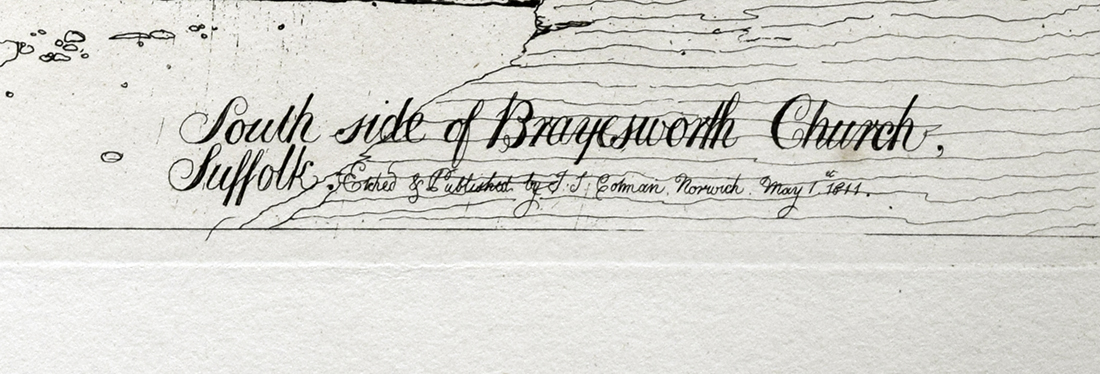 South side of Brayesworth Church,
Suffolk, Etched & Published by J. S. Cotman, Norwich. May 1st 1811.